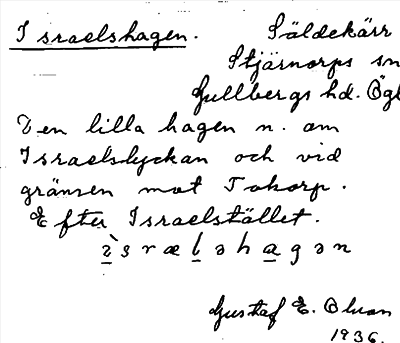 Israelshagen. Säldekärr
Stjärnorps sn
Gullbergs hd. Ögl
Den lilla hagen n. om
Israelslyckan och vid
gränsen mot Tokorp.
Efter Israelstället.
ìsrælshagən
Gustaf E. Olson
1936.